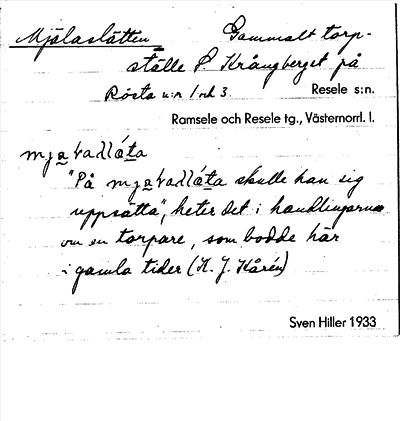 Mjälaslåtten Gammalt torp-
ställe S Krångberget på
Rösta u:n 1 och 3. Resele s:n.
Ramsele och Resele tg., Västernorrl. l.
"På skulle han sig
uppsätta", heter det i handlingarna
om en torpare, som bodde här
i gamla tider (N. J. Kårén)
Sven Hiller 1933